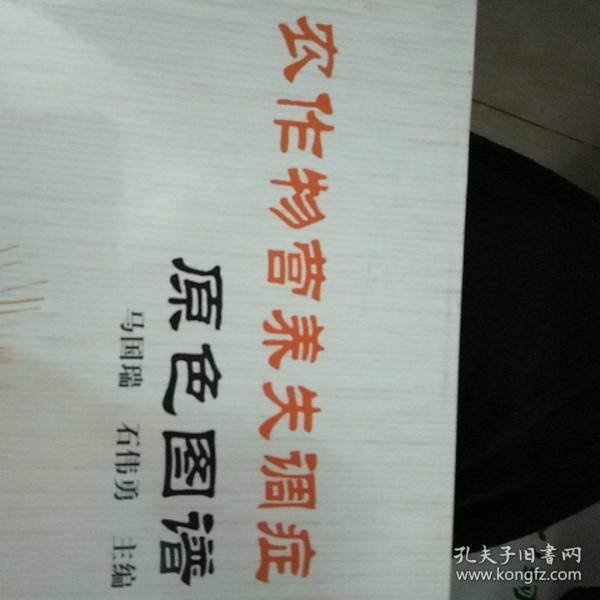 农作物营养失调症
原色图谱
马国瑞 石伟勇 主编
孔夫子旧书网
www.kongfz.com